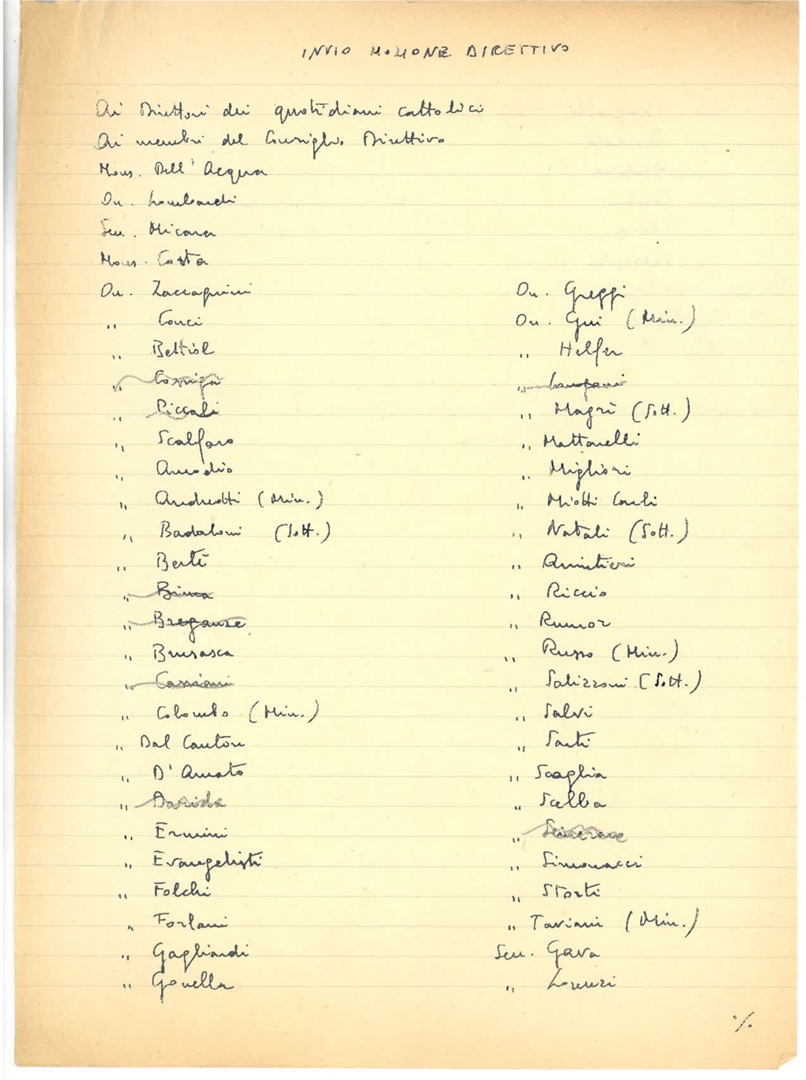 INVIO MOZIONE DIRETTIVO
Ai Direttori dei quotidiani cattolici
Ai membri del Consiglio Direttivo
Mons. Dell'Acqua
On. Lombardi
Sen. Micara
Mons. Costa
On. Zaccagnini
" Conci
" Bettiol
" Cossiga
" Piccoli
" Scalfaro
" Amodio
" Andreotti (Min.)
" Badaloni (Sott.)
" Berté
" Bima
" Breganze
" Brusasca
" Cassiani
" Colombo (Min.)
" Dal Canton
" D'Amato
"
" Ermini
" Evangelisti
" Folchi
" Forlani
" Gagliardi
" Gonella
On. Greggi
On. Gui (Min.)
" Helfer
"
" Magrì (Sott.)
" Mattarelli
" Migliori
" Miotti Carli
" Natali (Sott.)
" Quintieri
" Riccio
" Rumor
" Russo (Min.)
" Salizzoni (Sott.)
" Salvi
" Sarti
" Scaglia
" Scelba
"
" Simonacci
" Storti
" Taviani (Min.)
Sen. Gava
" Lorenzi
./.